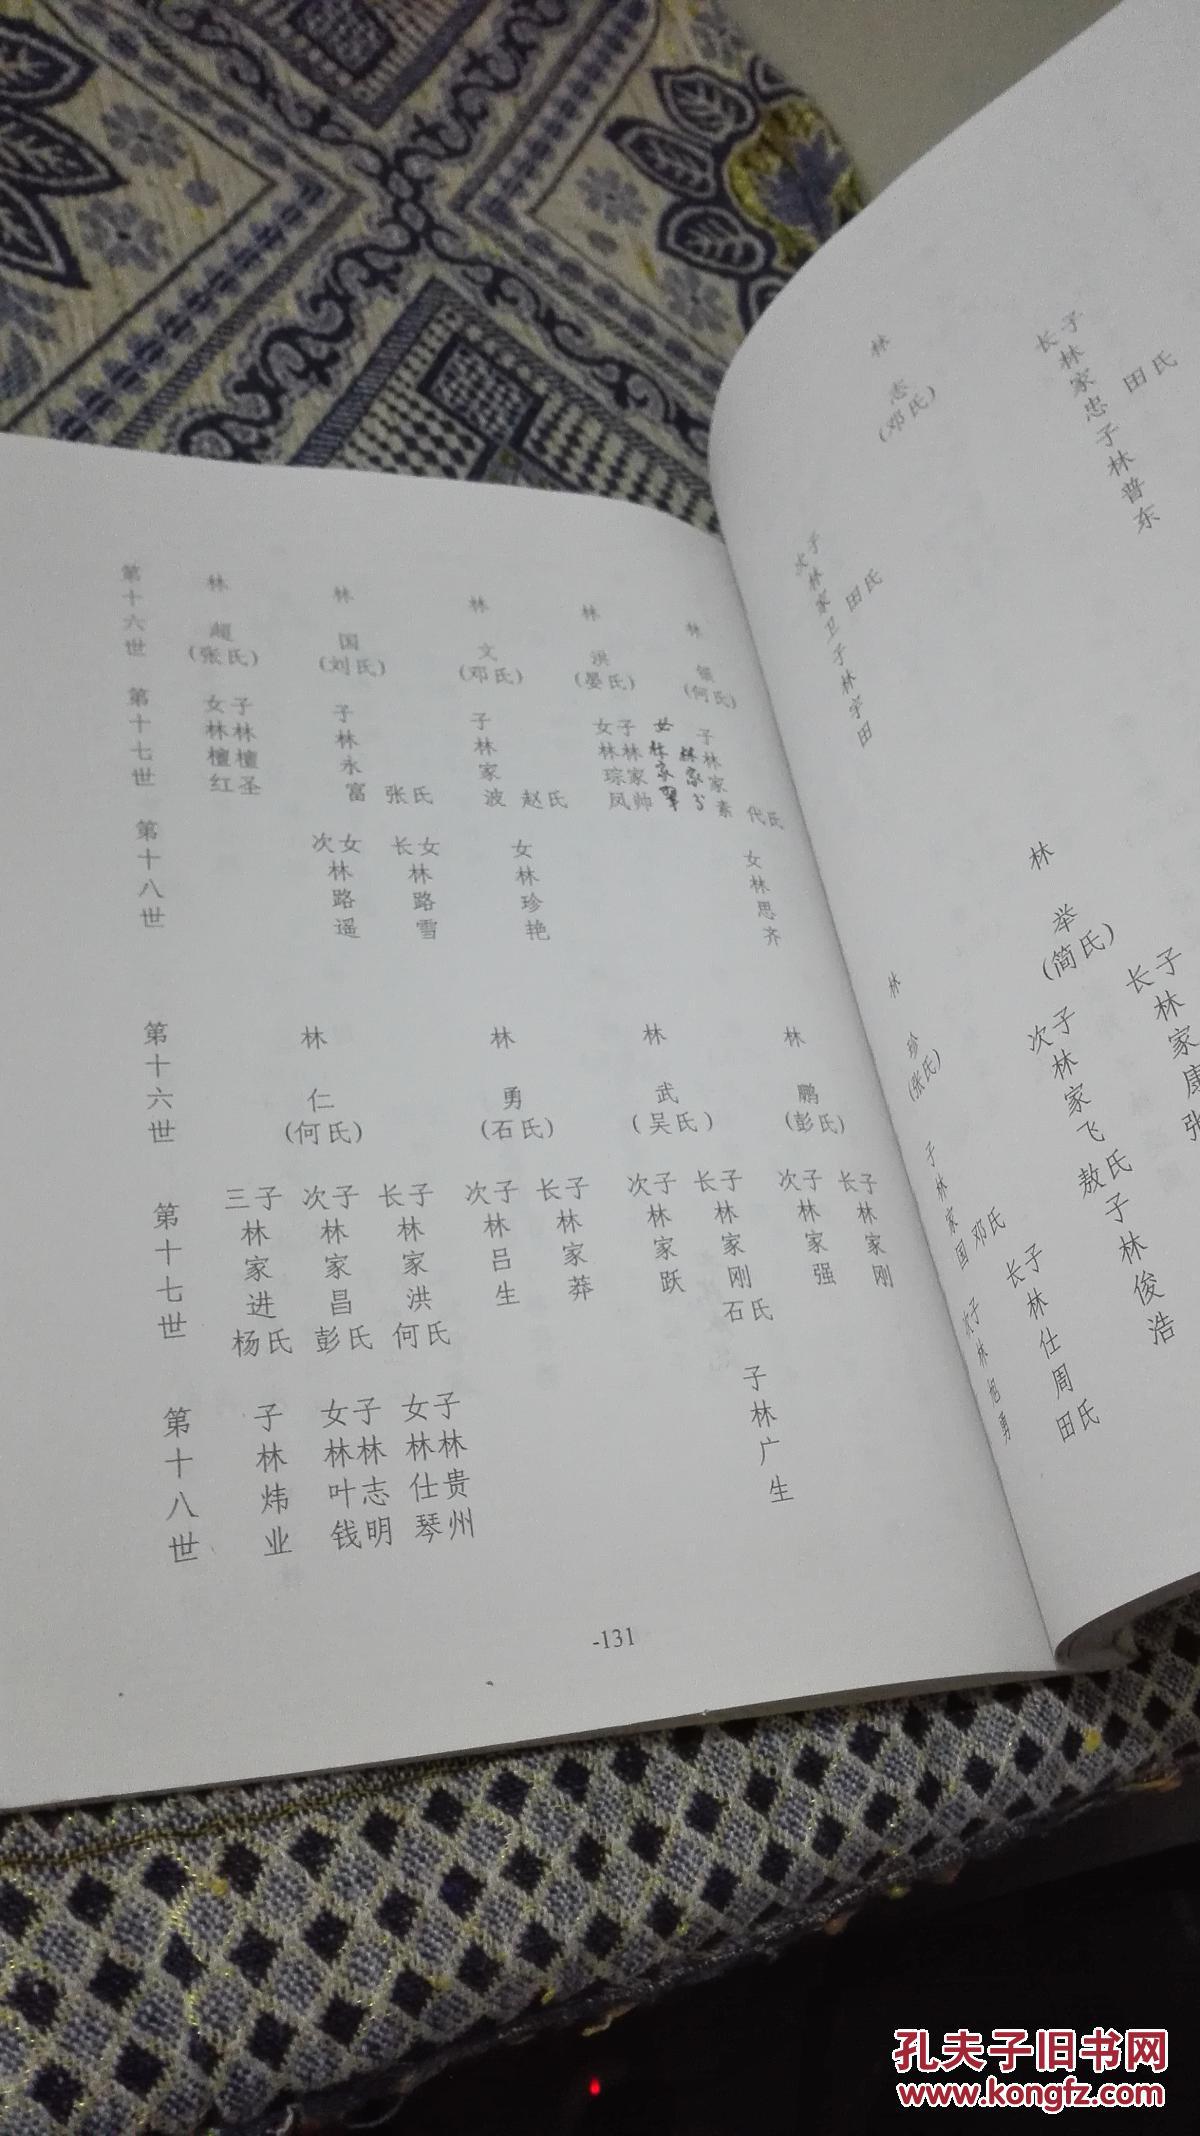 第十六世
林超
(张氏)
林国
(刘氏)
林文
(邓氏)
林洪
(晏氏)
林领
(何氏)
第十七世
女林檀红
子林檀圣
子林永富 张氏
子林家波 赵氏
女林琮凤
子林家帅
女林家翠
子林家素 代氏
第十八世
次女林路遥
长女林路雪
女林珍艳
女林思齐
第十六世
林仁
(何氏)
林勇
(石氏)
林武
(吴氏)
林鹏
(彭氏)
第十七世
三子林家进
杨氏
次子林家昌
彭氏
长子林家洪
何氏
次子林吕生
长子林家莽
次子林家跃
长子林家刚
石氏
次子林家强
长子林家刚
第十八世
子林炜业
女林叶钱
子林志明
女林仕琴
子林贵州
子林广生
-131
林志
(邓氏)
长子林家忠 田氏
子林普东
次子林家卫 田氏
子林宇田
林举
(简氏)
长子林家康 张
次子林家飞 敖氏
子林俊浩
林珍
(张氏)
子林家国 邓氏
长子林仕周 田氏
次子林旭勇
孔夫子旧书网
www.kongfz.com